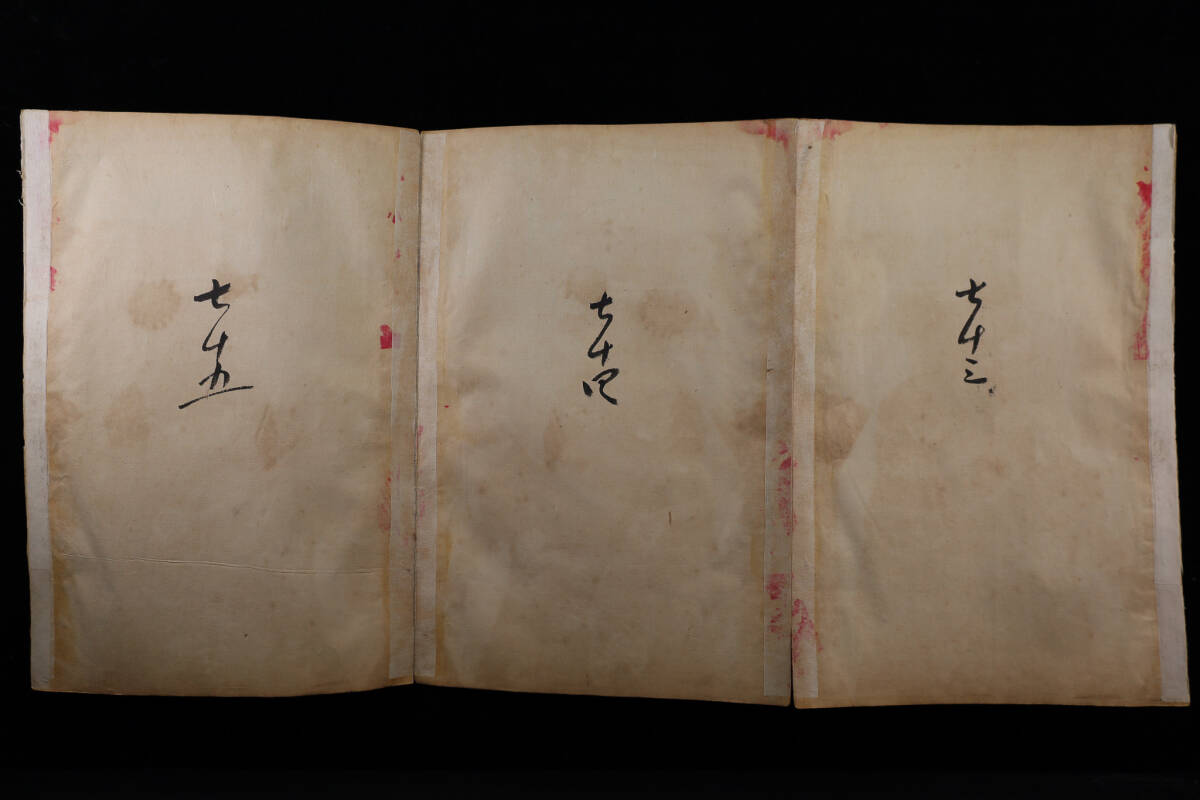 七十三
七十四
七十五